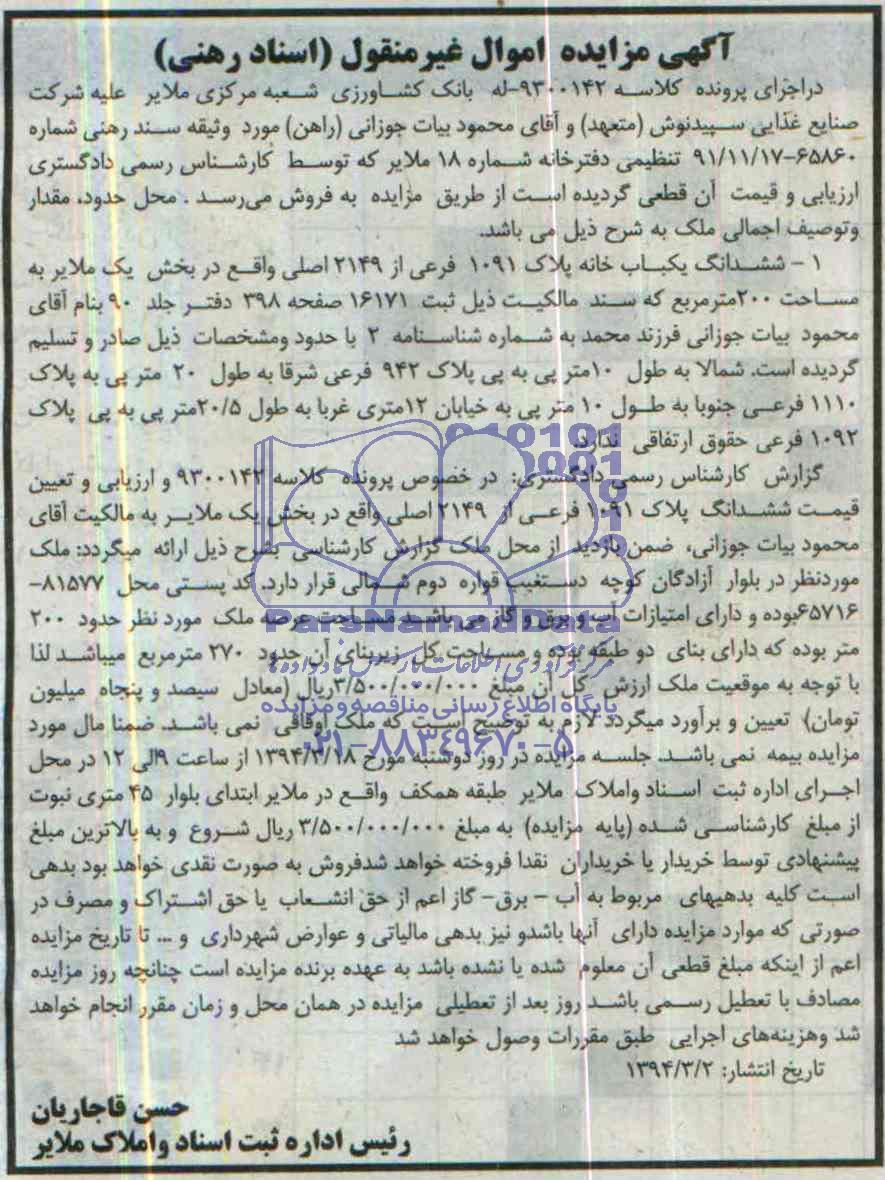 آگهی مزایده اموال غیرمنقول (اسناد رهنی)
دراجرای پرونده کلاسه ۹۳۰۰۱۴۲-له بانک کشاورزی شعبه مرکزی ملایر علیه شرکت
صنایع غذایی سپیدنوش (متعهد) و آقای محمود بیات جوزانی (راهن) مورد وثیقه سند رهنی شماره
۶۵۸۶۰-۹۱/۱۱/۱۷ تنظیمی دفترخانه شماره ۱۸ ملایر که توسط کارشناس رسمی دادگستری
ارزیابی و قیمت آن قطعی گردیده است از طریق مزایده به فروش می‌رسد . محل حدود، مقدار
وتوصیف اجمالی ملک به شرح ذیل می باشد.
۱ - ششدانگ یکباب خانه پلاک ۱۰۹۱ فرعی از ۲۱۴۹ اصلی واقع در بخش یک ملایر به
مساحت ۲۰۰مترمربع که سند مالکیت ذیل ثبت ۱۶۱۷۱ صفحه ۳۹۸ دفتر جلد ۹۰ بنام آقای
محمود بیات جوزانی فرزند محمد به شماره شناسنامه ۲ با حدود ومشخصات ذیل صادر و تسلیم
گردیده است. شمالا به طول ۱۰متر پی به پی پلاک ۹۴۲ فرعی شرقا به طول ۲۰ متر پی به پلاک
۱۱۱۰ فرعی جنوبا به طول ۱۰ متر پی به خیابان ۱۲متری غربا به طول ۲۰/۵متر پی به پی پلاک
۱۰۹۲ فرعی حقوق ارتفاقی ندارد.
گزارش کارشناس رسمی دادگستری: در خصوص پرونده کلاسه ۹۳۰۰۱۴۲ و ارزیابی و تعیین
قیمت ششدانگ پلاک ۱۰۹۱ فرعی از ۲۱۴۹ اصلی واقع در بخش یک ملایر به مالکیت آقای
محمود بیات جوزانی، ضمن بازدید از محل ملک گزارش کارشناسی بشرح ذیل ارائه میگردد: ملک
موردنظر در بلوار آزادگان کوچه دستغیب قواره دوم شمالی قرار دارد. کد پستی محل ۸۱۵۷۷-
۶۵۷۱۶بوده و دارای امتیازات آب و برق و گاز می باشد مساحت عرصه ملک مورد نظر حدود ۲۰۰
متر بوده که دارای بنای دو طبقه بوده و مساحت کل زیربنای آن حدود ۲۷۰ مترمربع میباشد لذا
با توجه به موقعیت ملک ارزش کل آن مبلغ ۳/۵۰۰/۰۰۰/۰۰۰ریال (معادل سیصد و پنجاه میلیون
تومان) تعیین و برآورد میگردد لازم به توضیح است که ملک اوقافی نمی باشد. ضمنا مال مورد
مزایده بیمه نمی باشد. جلسه مزایده در روز دوشنبه مورخ ۱۳۹۴/۳/۱۸ از ساعت ۹الی ۱۲ در محل
اجرای اداره ثبت اسناد واملاک ملایر طبقه همکف واقع در ملایر ابتدای بلوار ۴۵ متری نبوت
از مبلغ کارشناسی شده (پایه مزایده) به مبلغ ۳/۵۰۰/۰۰۰/۰۰۰ ریال شروع و به بالاترین مبلغ
پیشنهادی توسط خریدار یا خریداران نقدا فروخته خواهد شدفروش به صورت نقدی خواهد بود بدهی
است کلیه بدهیهای مربوط به آب - برق- گاز اعم از حق انشعاب یا حق اشتراک و مصرف در
صورتی که موارد مزایده دارای آنها باشدو نیز بدهی مالیاتی و عوارض شهرداری و ... تا تاریخ مزایده
اعم از اینکه مبلغ قطعی آن معلوم شده یا نشده باشد به عهده برنده مزایده است چنانچه روز مزایده
مصادف با تعطیل رسمی باشد روز بعد از تعطیلی مزایده در همان محل و زمان مقرر انجام خواهد
شد وهزینه‌های اجرایی طبق مقررات وصول خواهد شد
تاریخ انتشار: ۱۳۹۴/۳/۲
حسن قاجاریان
رئیس اداره ثبت اسناد واملاک ملایر
ParsNamadData
مرکز فرآوری اطلاعات پارس نماد داده ها
پایگاه اطلاع رسانی مناقصه و مزایده
۰۲۱-۸۸۳۴۹۶۷۰-۵